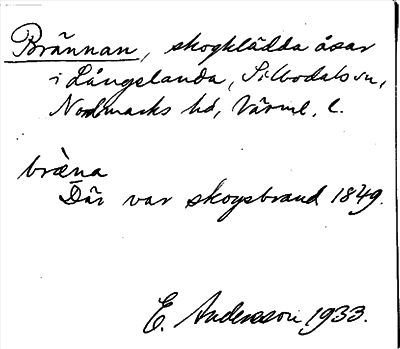 Brännan, skogklädda åsar
i Långelanda, Silbodals sn,
Nordmarks hd, Värml. l.
bræ̀na
Där var skogsbrand 1849.
E. Andersson 1933.